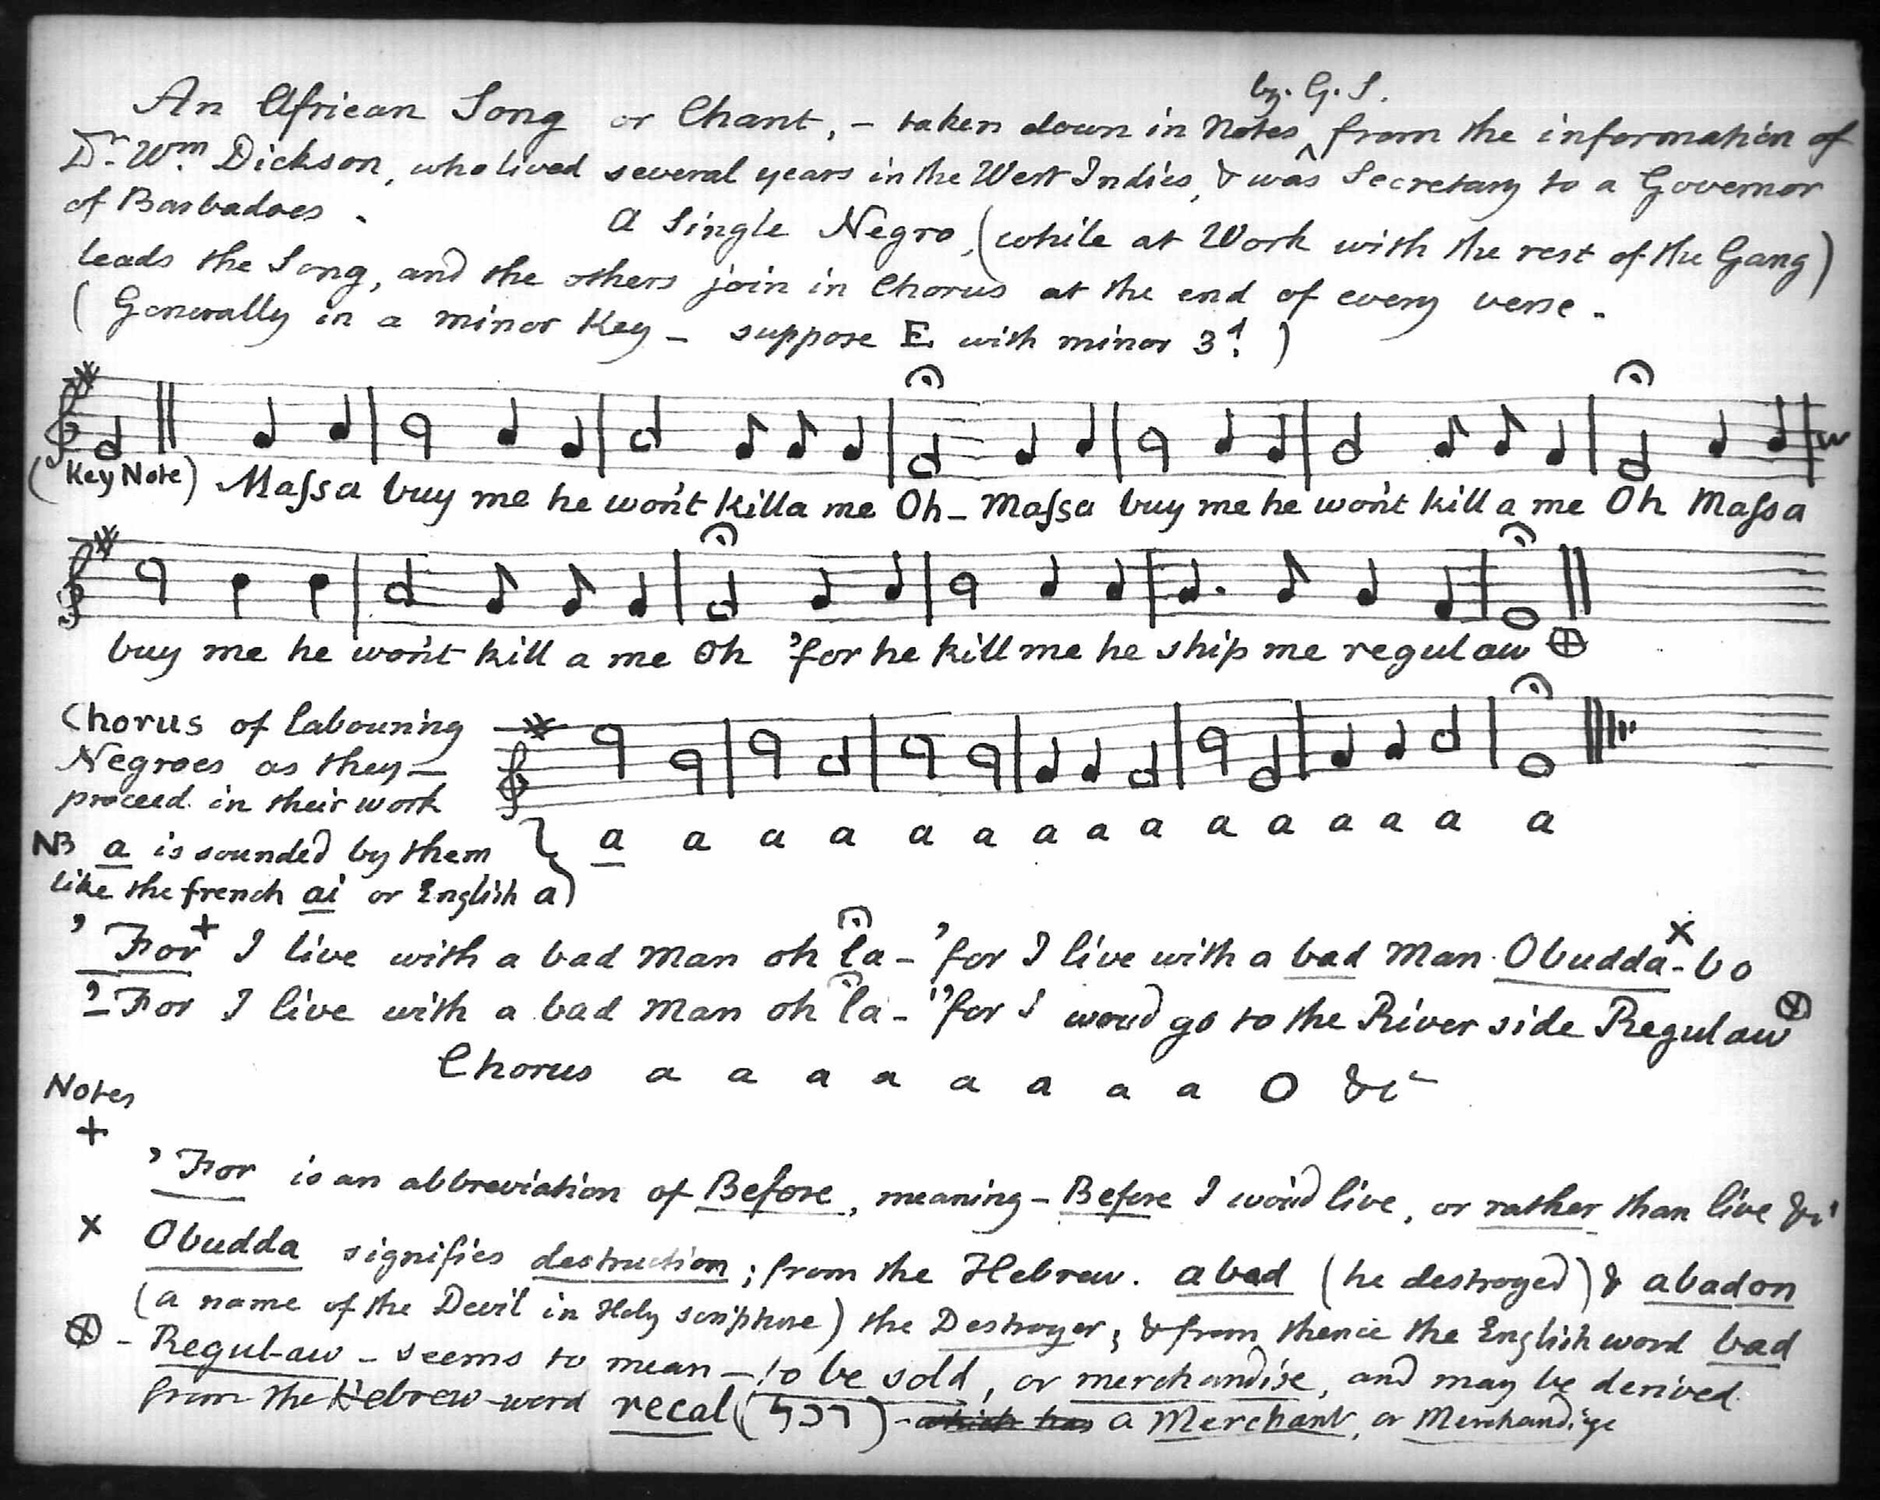 by. G. S.
An African Song or Chant, - taken down in Notes ^ from the information of
Dr. Wm. Dickson, who lived several years in the West Indies, & was Secretary to a Governor
of Barbadoes. A Single Negro, (while at Work with the rest of the Gang)
leads the Song, and the others join in Chorus at the end of every verse.
(Generally in a minor Key - suppose E with minor 3d.)
(Key Note) Maſsa buy me he won't killa me Oh - Maſsa buy me he won't kill a me Oh Maſsa
buy me he won't kill a me Oh 'for he kill me he ship me regulaw ⊕
Chorus of labouring
Negroes as they -
proceed in their work
a a a a a a a a a a a a a a a
NB a is sounded by them
like the french ai or English a)
'For + I live with a bad man oh la - 'for I live with a bad Man Obudda x - bo
'For I live with a bad man oh la - 'for I woud go to the River side Regulaw ⊗
Chorus a a a a a a a a O &c
Notes
+
'For is an abbreviation of Before, meaning - Before I woud live, or rather than live &c
x Obudda signifies destruction; from the Hebrew. abad (he destroyed) & abadon
(a name of the Devil in Holy scripture) the Destroyer; & from thence the English word bad
⊗ - Regulaw - seems to mean - to be sold, or merchandise, and may be derived
from the Hebrew word recal (רכל) - which has a Merchant, or Merchandize